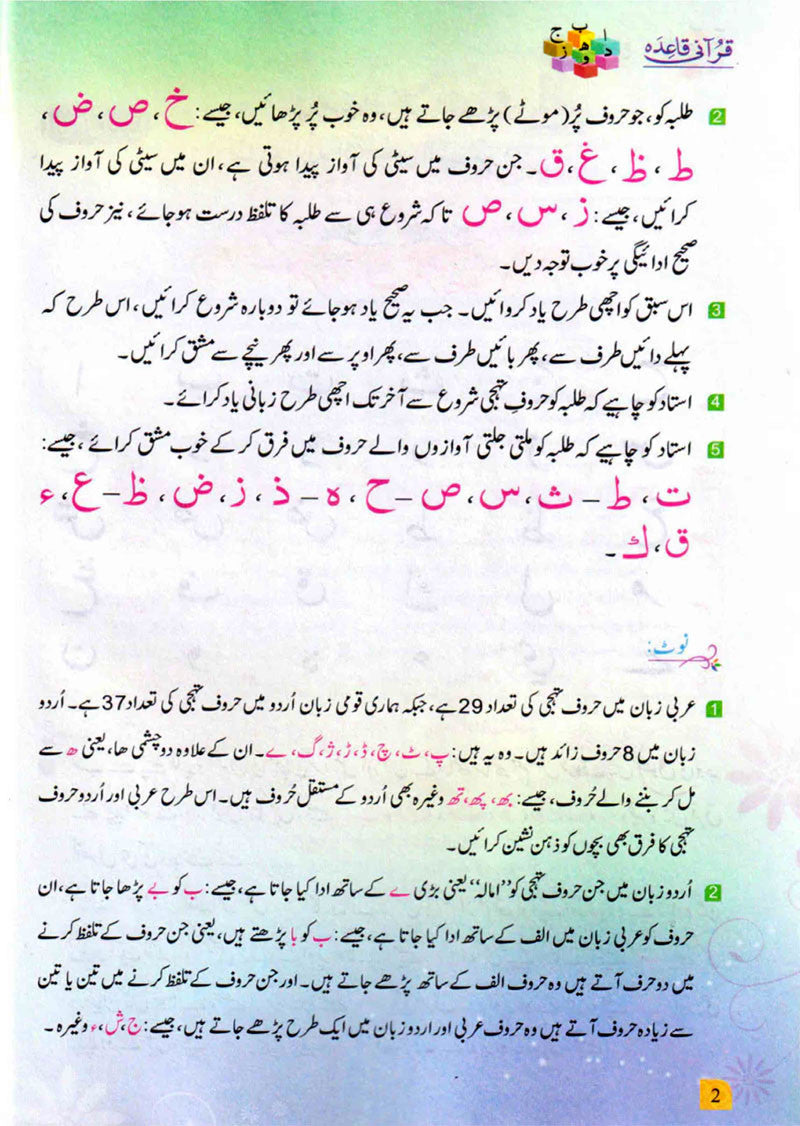 قرآنی قاعدہ
ا ب ج
د ھ و ز
2 طلبہ کو، جو حروف پُر (موٹے) پڑھے جاتے ہیں، وہ خوب پُر پڑھائیں، جیسے: خ، ص، ض،
ط، ظ، غ، ق۔ جن حروف میں سیٹی کی آواز پیدا ہوتی ہے، ان میں سیٹی کی آواز پیدا
کرائیں، جیسے: ز، س، ص تاکہ شروع ہی سے طلبہ کا تلفظ درست ہوجائے، نیز حروف کی
صحیح ادائیگی پر خوب توجہ دیں۔
3 اس سبق کو اچھی طرح یاد کروائیں۔ جب یہ صحیح یاد ہوجائے تو دوبارہ شروع کرائیں، اس طرح کہ
پہلے دائیں طرف سے، پھر بائیں طرف سے، پھر اوپر سے اور پھر نیچے سے مشق کرائیں۔
4 استاد کو چاہیے کہ طلبہ کو حروفِ تہجی شروع سے آخر تک اچھی طرح زبانی یاد کرائے۔
5 استاد کو چاہیے کہ طلبہ کو ملتی جلتی آوازوں والے حروف میں فرق کر کے خوب مشق کرائے، جیسے:
ت، ط – ث، س، ص – ح، ہ – ذ، ز، ض، ظ – ع، ء
ق، ك۔
نوٹ:
1 عربی زبان میں حروف تہجی کی تعداد 29 ہے، جبکہ ہماری قومی زبان اُردو میں حروف تہجی کی تعداد 37 ہے۔ اُردو
زبان میں 8 حروف زائد ہیں۔ وہ یہ ہیں: پ، ٹ، چ، ڈ، ڑ، ژ، گ، ے۔ ان کے علاوہ دو چشمی ھا، یعنی ھ سے
مل کر بننے والے حُروف، جیسے: بھ، پھ، تھ وغیرہ بھی اُردو کے مستقل حُروف ہیں۔ اس طرح عربی اور اُردو حروف
تہجی کا فرق بھی بچوں کو ذہن نشین کرائیں۔
2 اُردو زبان میں جن حروف تہجی کو "امالہ" یعنی بڑی ے کے ساتھ ادا کیا جاتا ہے، جیسے: ب کو بے پڑھا جاتا ہے، ان
حروف کو عربی زبان میں الف کے ساتھ ادا کیا جاتا ہے، جیسے: ب کو با پڑھتے ہیں، یعنی جن حروف کے تلفظ کرنے
میں دو حرف آتے ہیں وہ حروف الف کے ساتھ پڑھے جاتے ہیں۔ اور جن حروف کے تلفظ کرنے میں تین یا تین
سے زیادہ حروف آتے ہیں وہ حروف عربی اور اردو زبان میں ایک طرح پڑھے جاتے ہیں، جیسے: ج، ش، ء وغیرہ۔
2